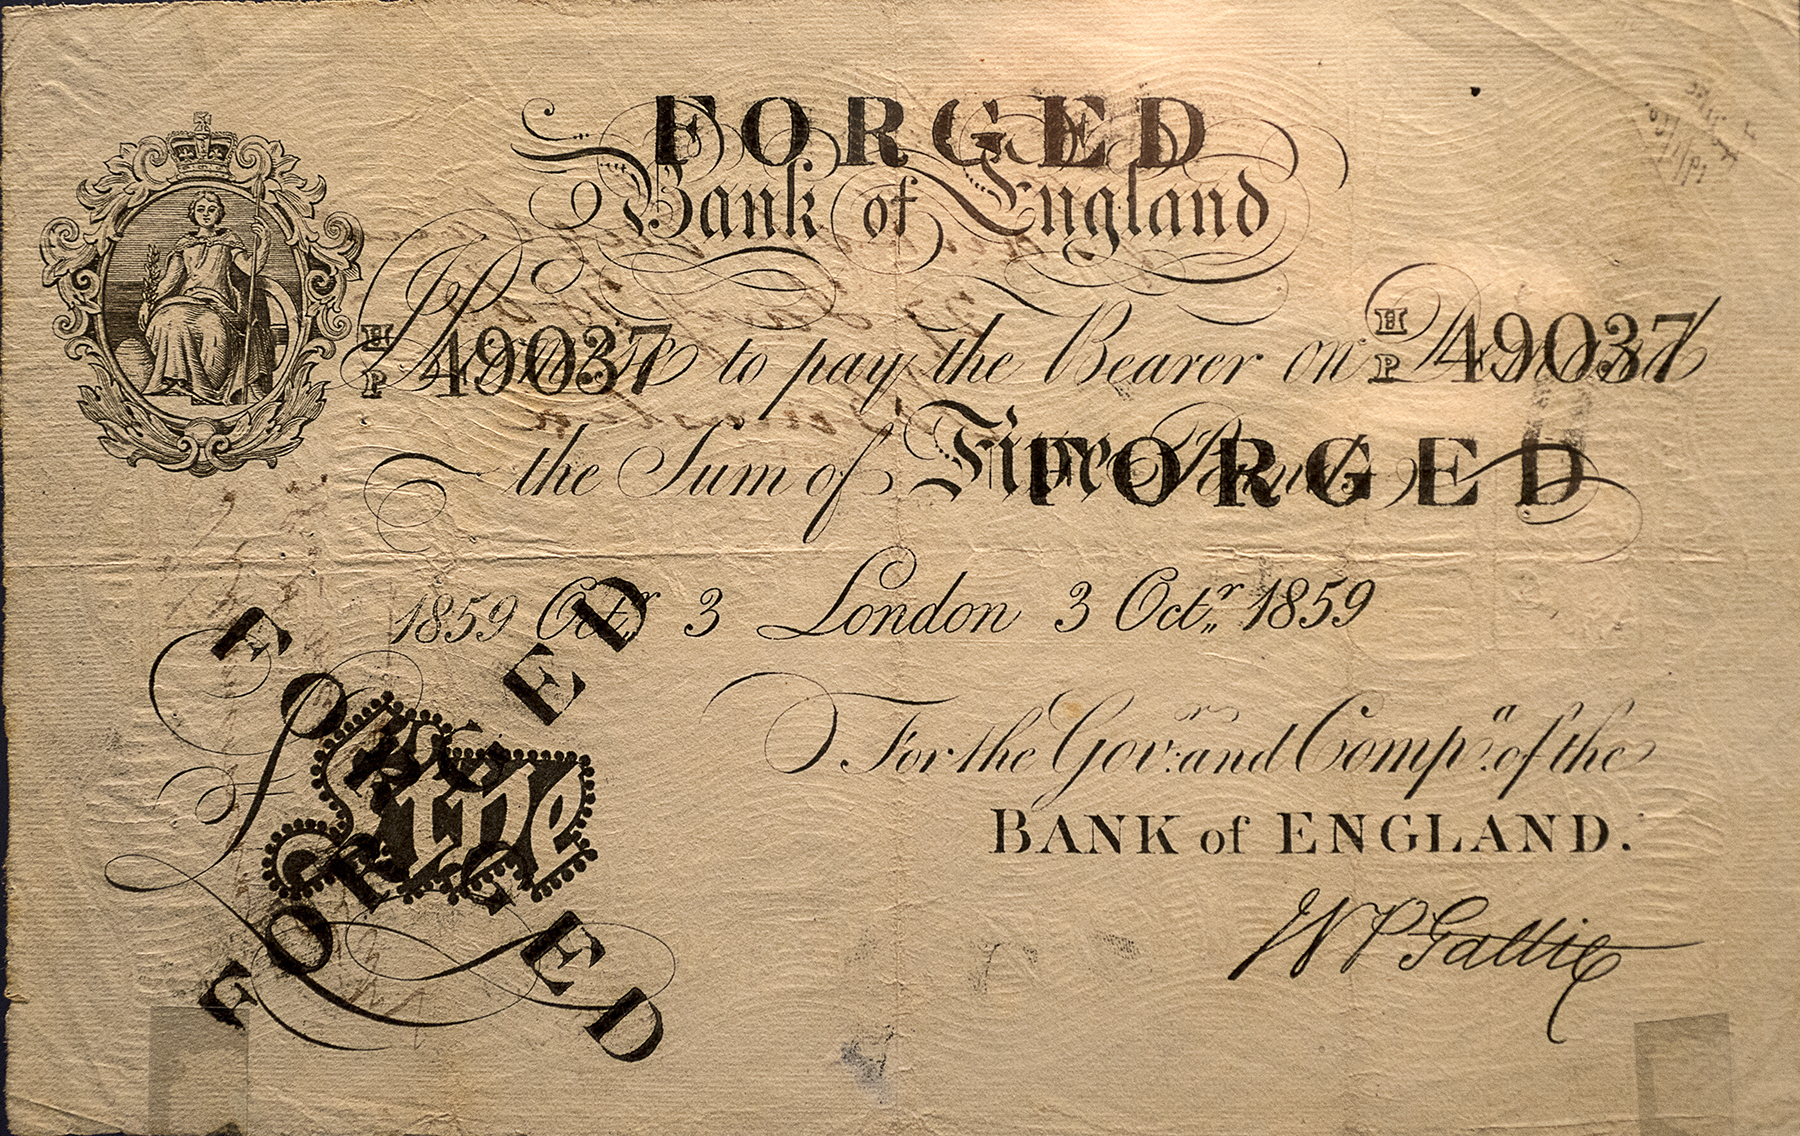 FORGED
Bank of England
H/P 49037 H/P 49037
I Promise to pay the Bearer on Demand
the Sum of Five Pounds
FORGED
1859 Octr. 3 London 3 Octr. 1859
FORGED
For the Govr. and Compa. of the
£ Five
BANK of ENGLAND.
FORGED
W P Gattie